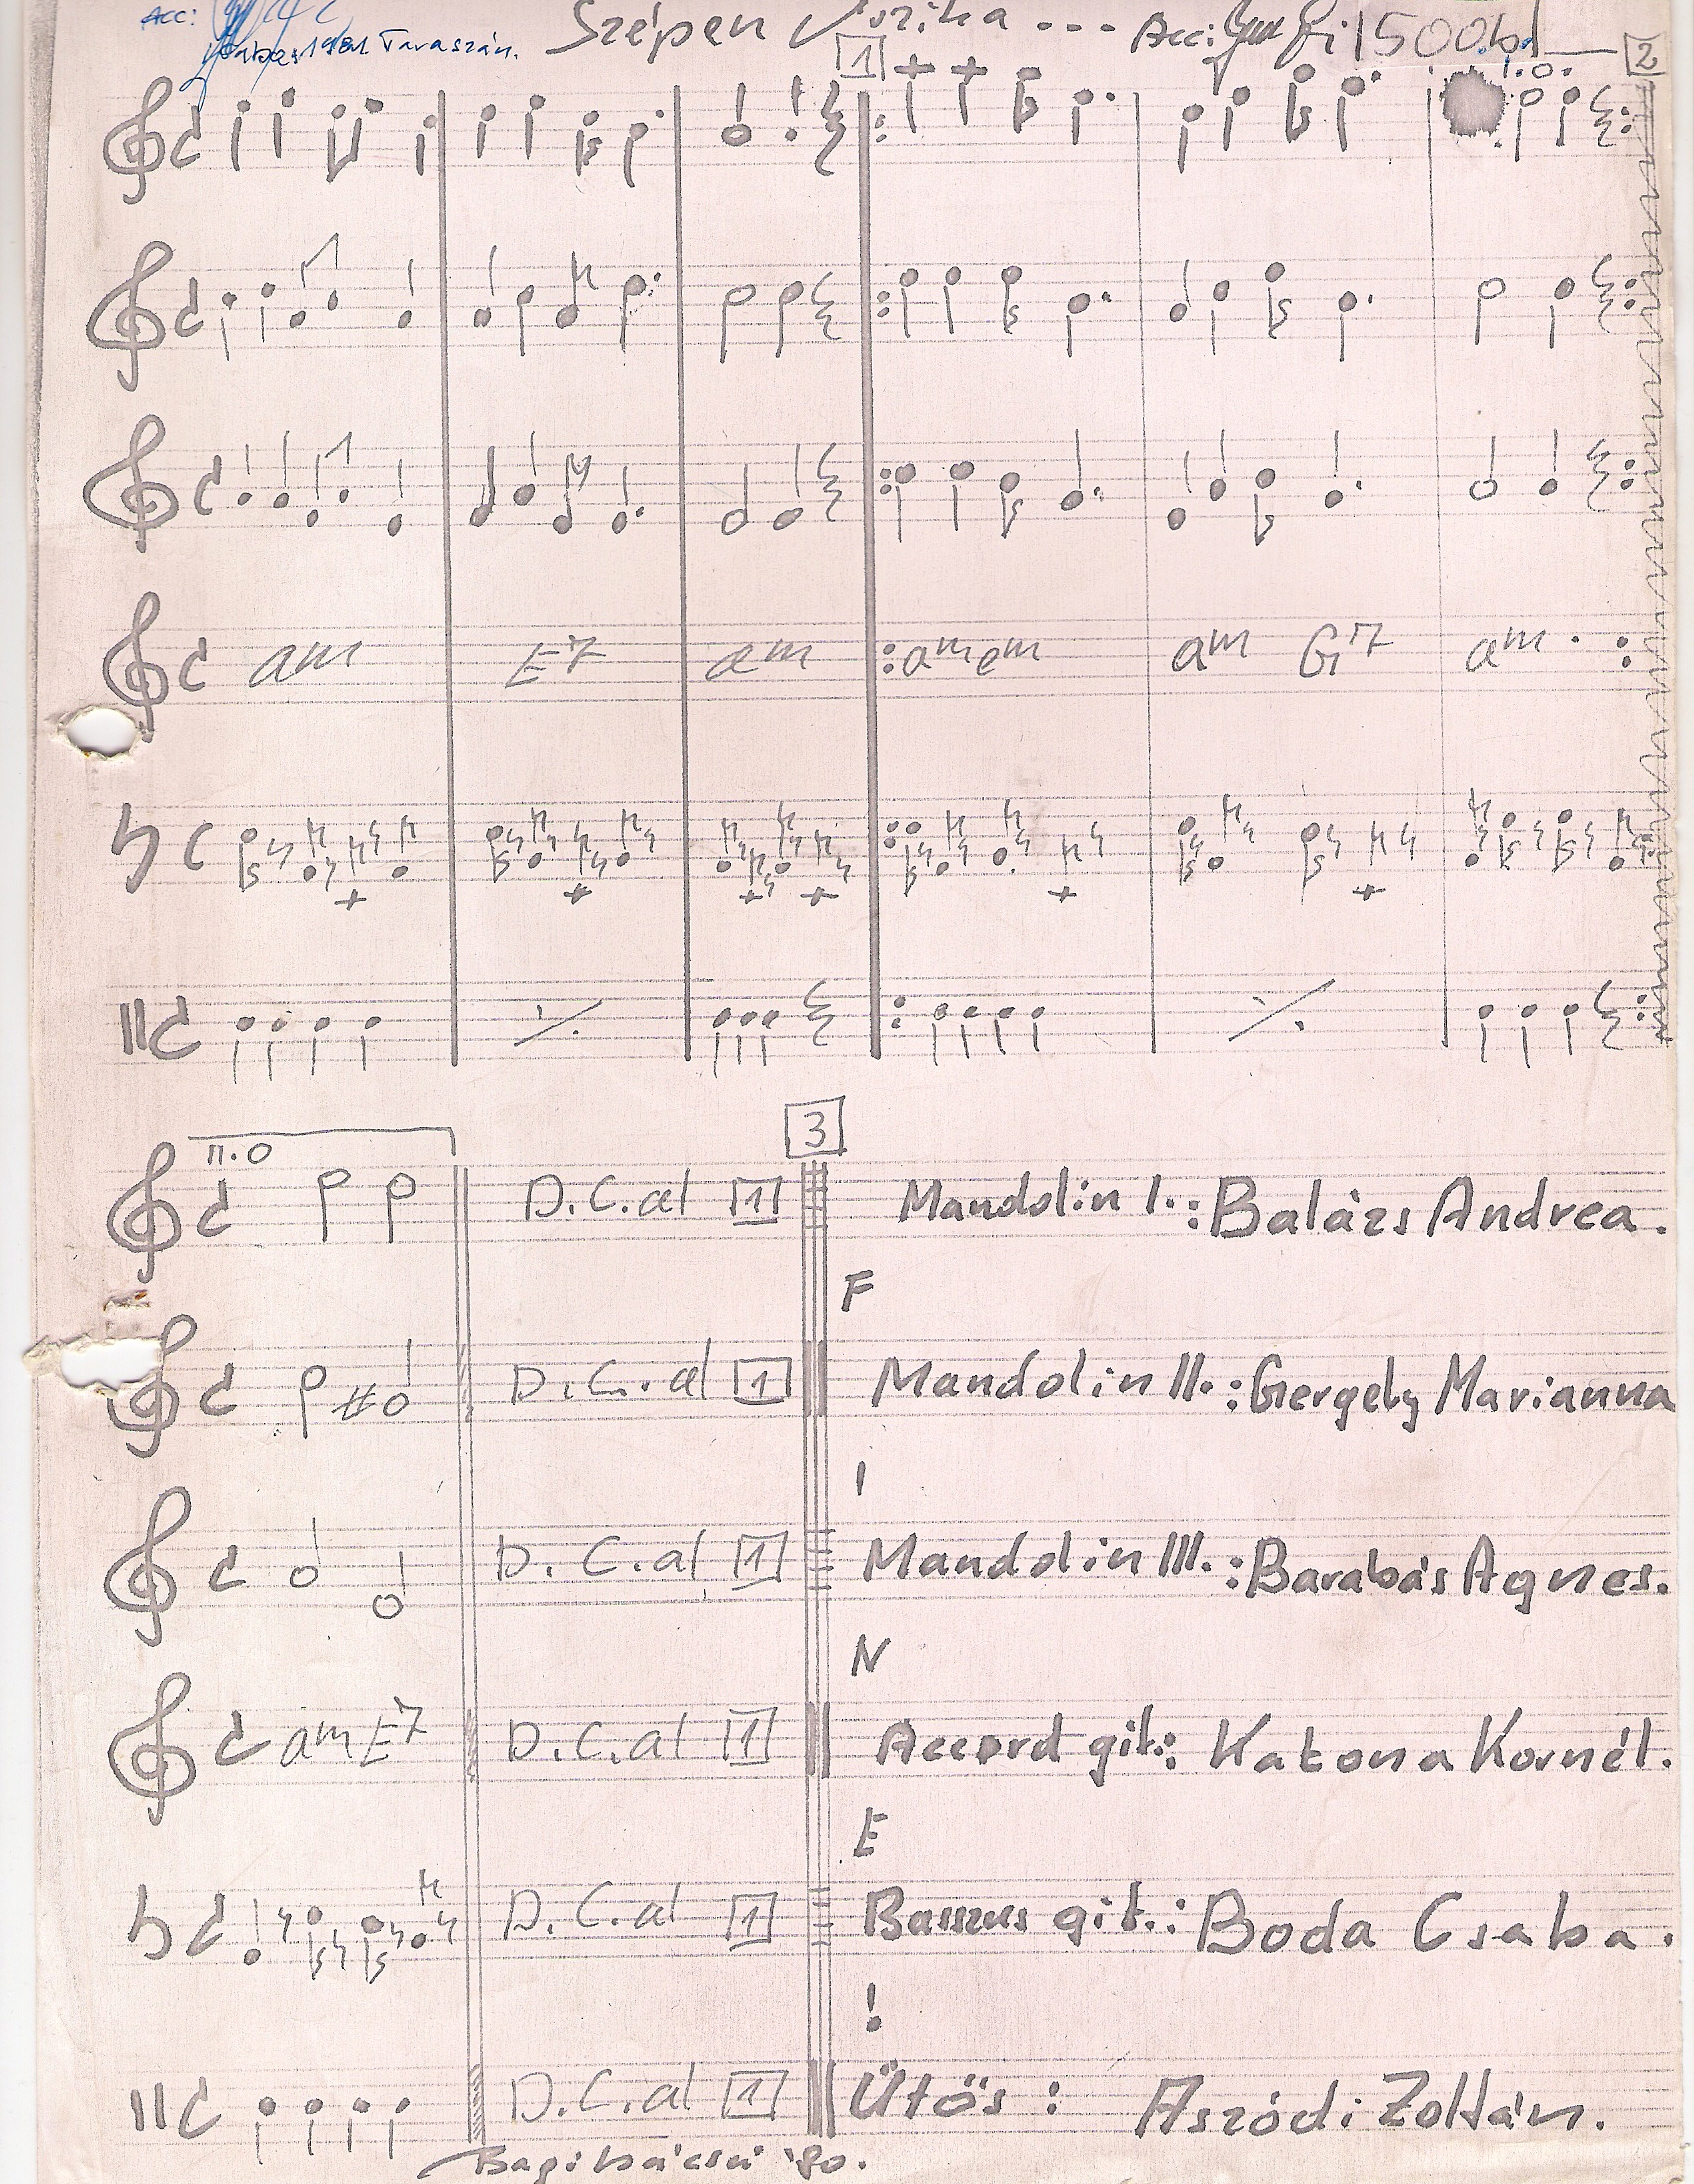 Acc: Szépen ... Acc: 1500
1981 Tavaszán.
1 2
am E7 am am em am G7 am
3
II.o
D.C.al 1 Mandolin I.: Balázs Andrea.
F
D.C.al 1 Mandolin II.: Gergely Marianna
I
D.C.al 1 Mandolin III.: Barabás Agnes.
N
am E7 D.C.al 1 Accord git.: Katona Kornél.
E
D.C.al 1 Basszus git.: Boda Csaba.
!
D.C.al 1 Ütős: Aszódi Zoltán.
'80.